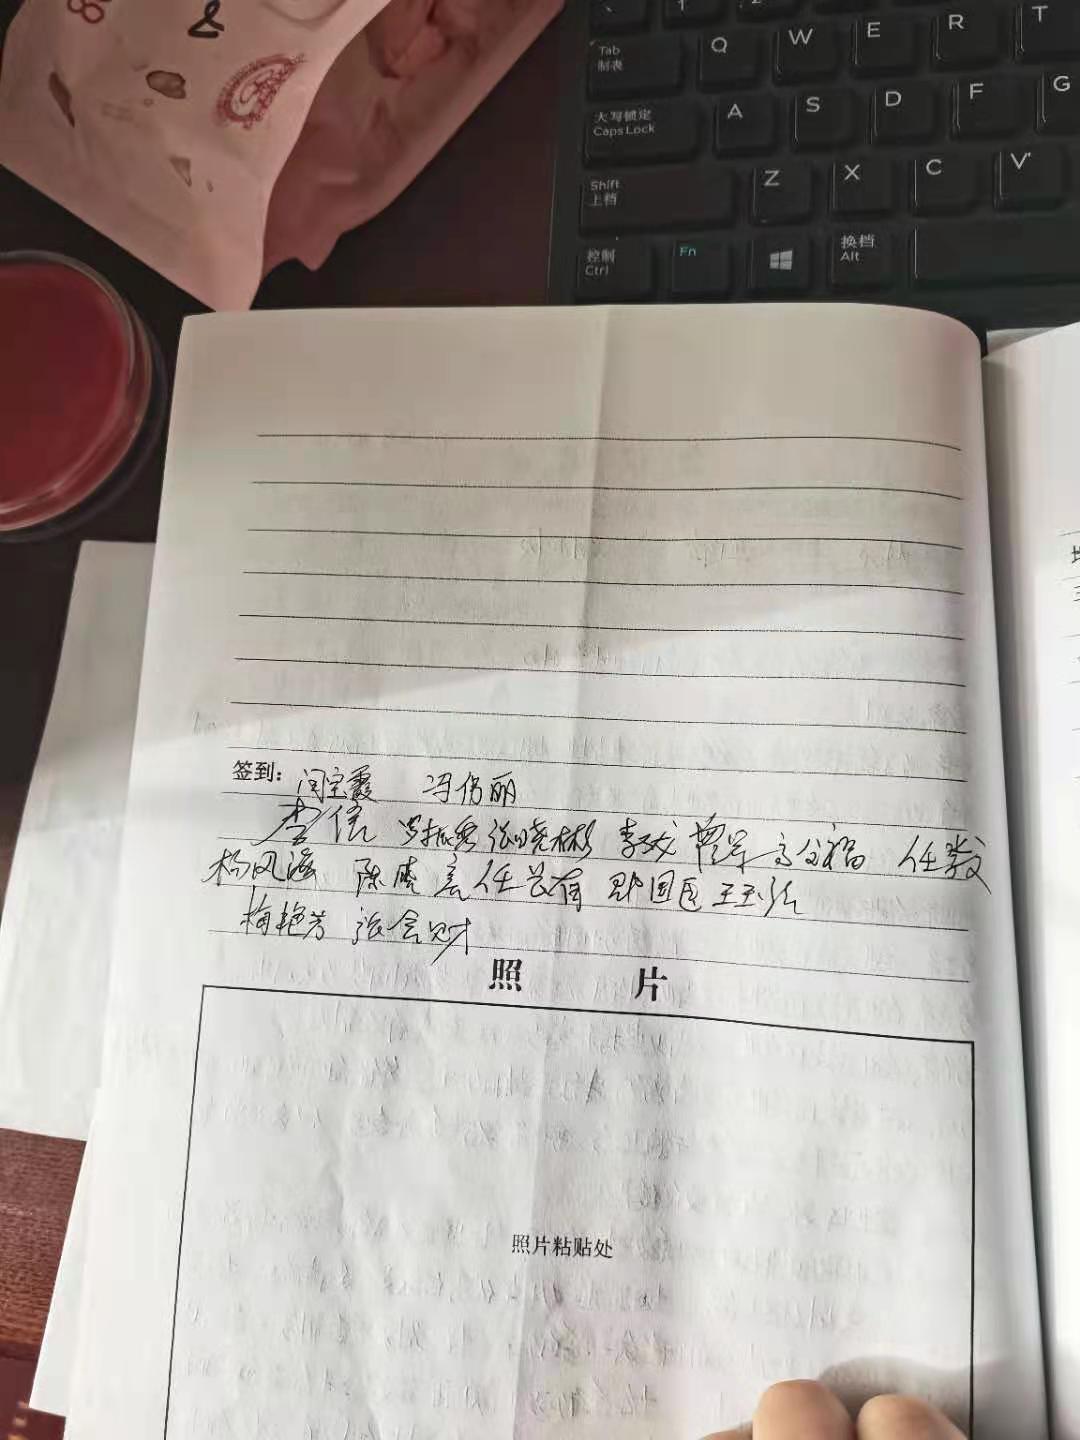 Q W E R T
Tab
制表
A S D F G
大写锁定
Caps Lock
Z X C V
Shift
上档
控制
Ctrl
Fn
换档
Alt
签到: 闫宝霞 冯伟丽
李信 张晓彬 李文 曹军 任数文
杨风海 陈虎 任共有 郭国臣 王玉红
梅艳芳 张会财
照 片
照片粘贴处